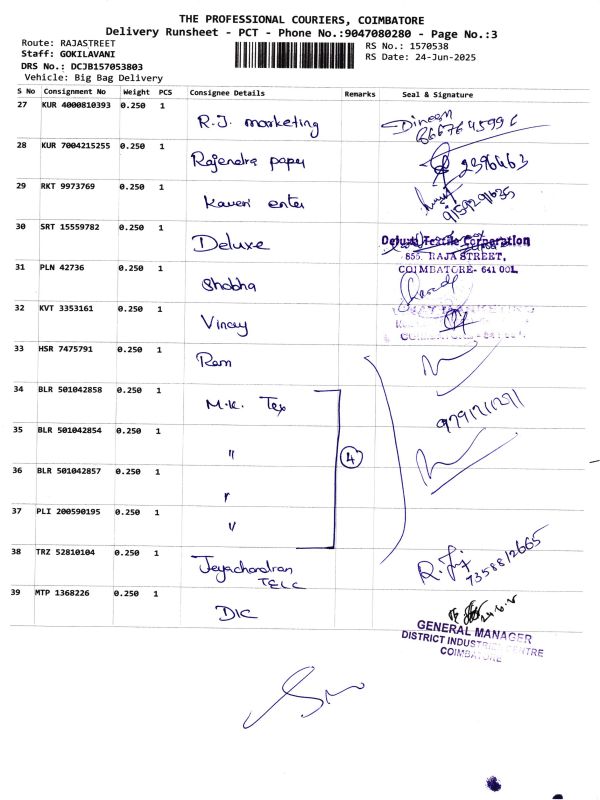 THE PROFESSIONAL COURIERS, COIMBATORE
Delivery Runsheet - PCT - Phone No.:9047080280 - Page No.:3
Route: RAJASTREET
RS No.: 1570538
Staff: GOKILAVANI
RS Date: 24-Jun-2025
DRS No.: DCJB157053803
Vehicle: Big Bag Delivery
S No Consignment No Weight PCS Consignee Details Remarks Seal & Signature
27 KUR 4000810393 0.250 1 R.J. marketing Dinesh
28 KUR 7004215255 0.250 1 Rajendra paper 2396463
29 RKT 9973769 0.250 1 Kaveri enter
30 SRT 15559782 0.250 1 Deluxe Deluxe Textile Corporation
855, RAJA STREET,
COIMBATORE- 641 001.
31 PLN 42736 0.250 1 Shobha
32 KVT 3353161 0.250 1 Vinay
33 HSR 7475791 0.250 1 Ram
34 BLR 501042858 0.250 1 M.K. Tex
9791211271
35 BLR 501042854 0.250 1 "
4
36 BLR 501042857 0.250 1 "
37 PLI 200590195 0.250 1 "
38 TRZ 52810104 0.250 1 Jeyachandran
TELC
7358812665
39 MTP 1368226 0.250 1 DIC
GENERAL MANAGER
DISTRICT INDUSTRIES CENTRE
COIMBATORE